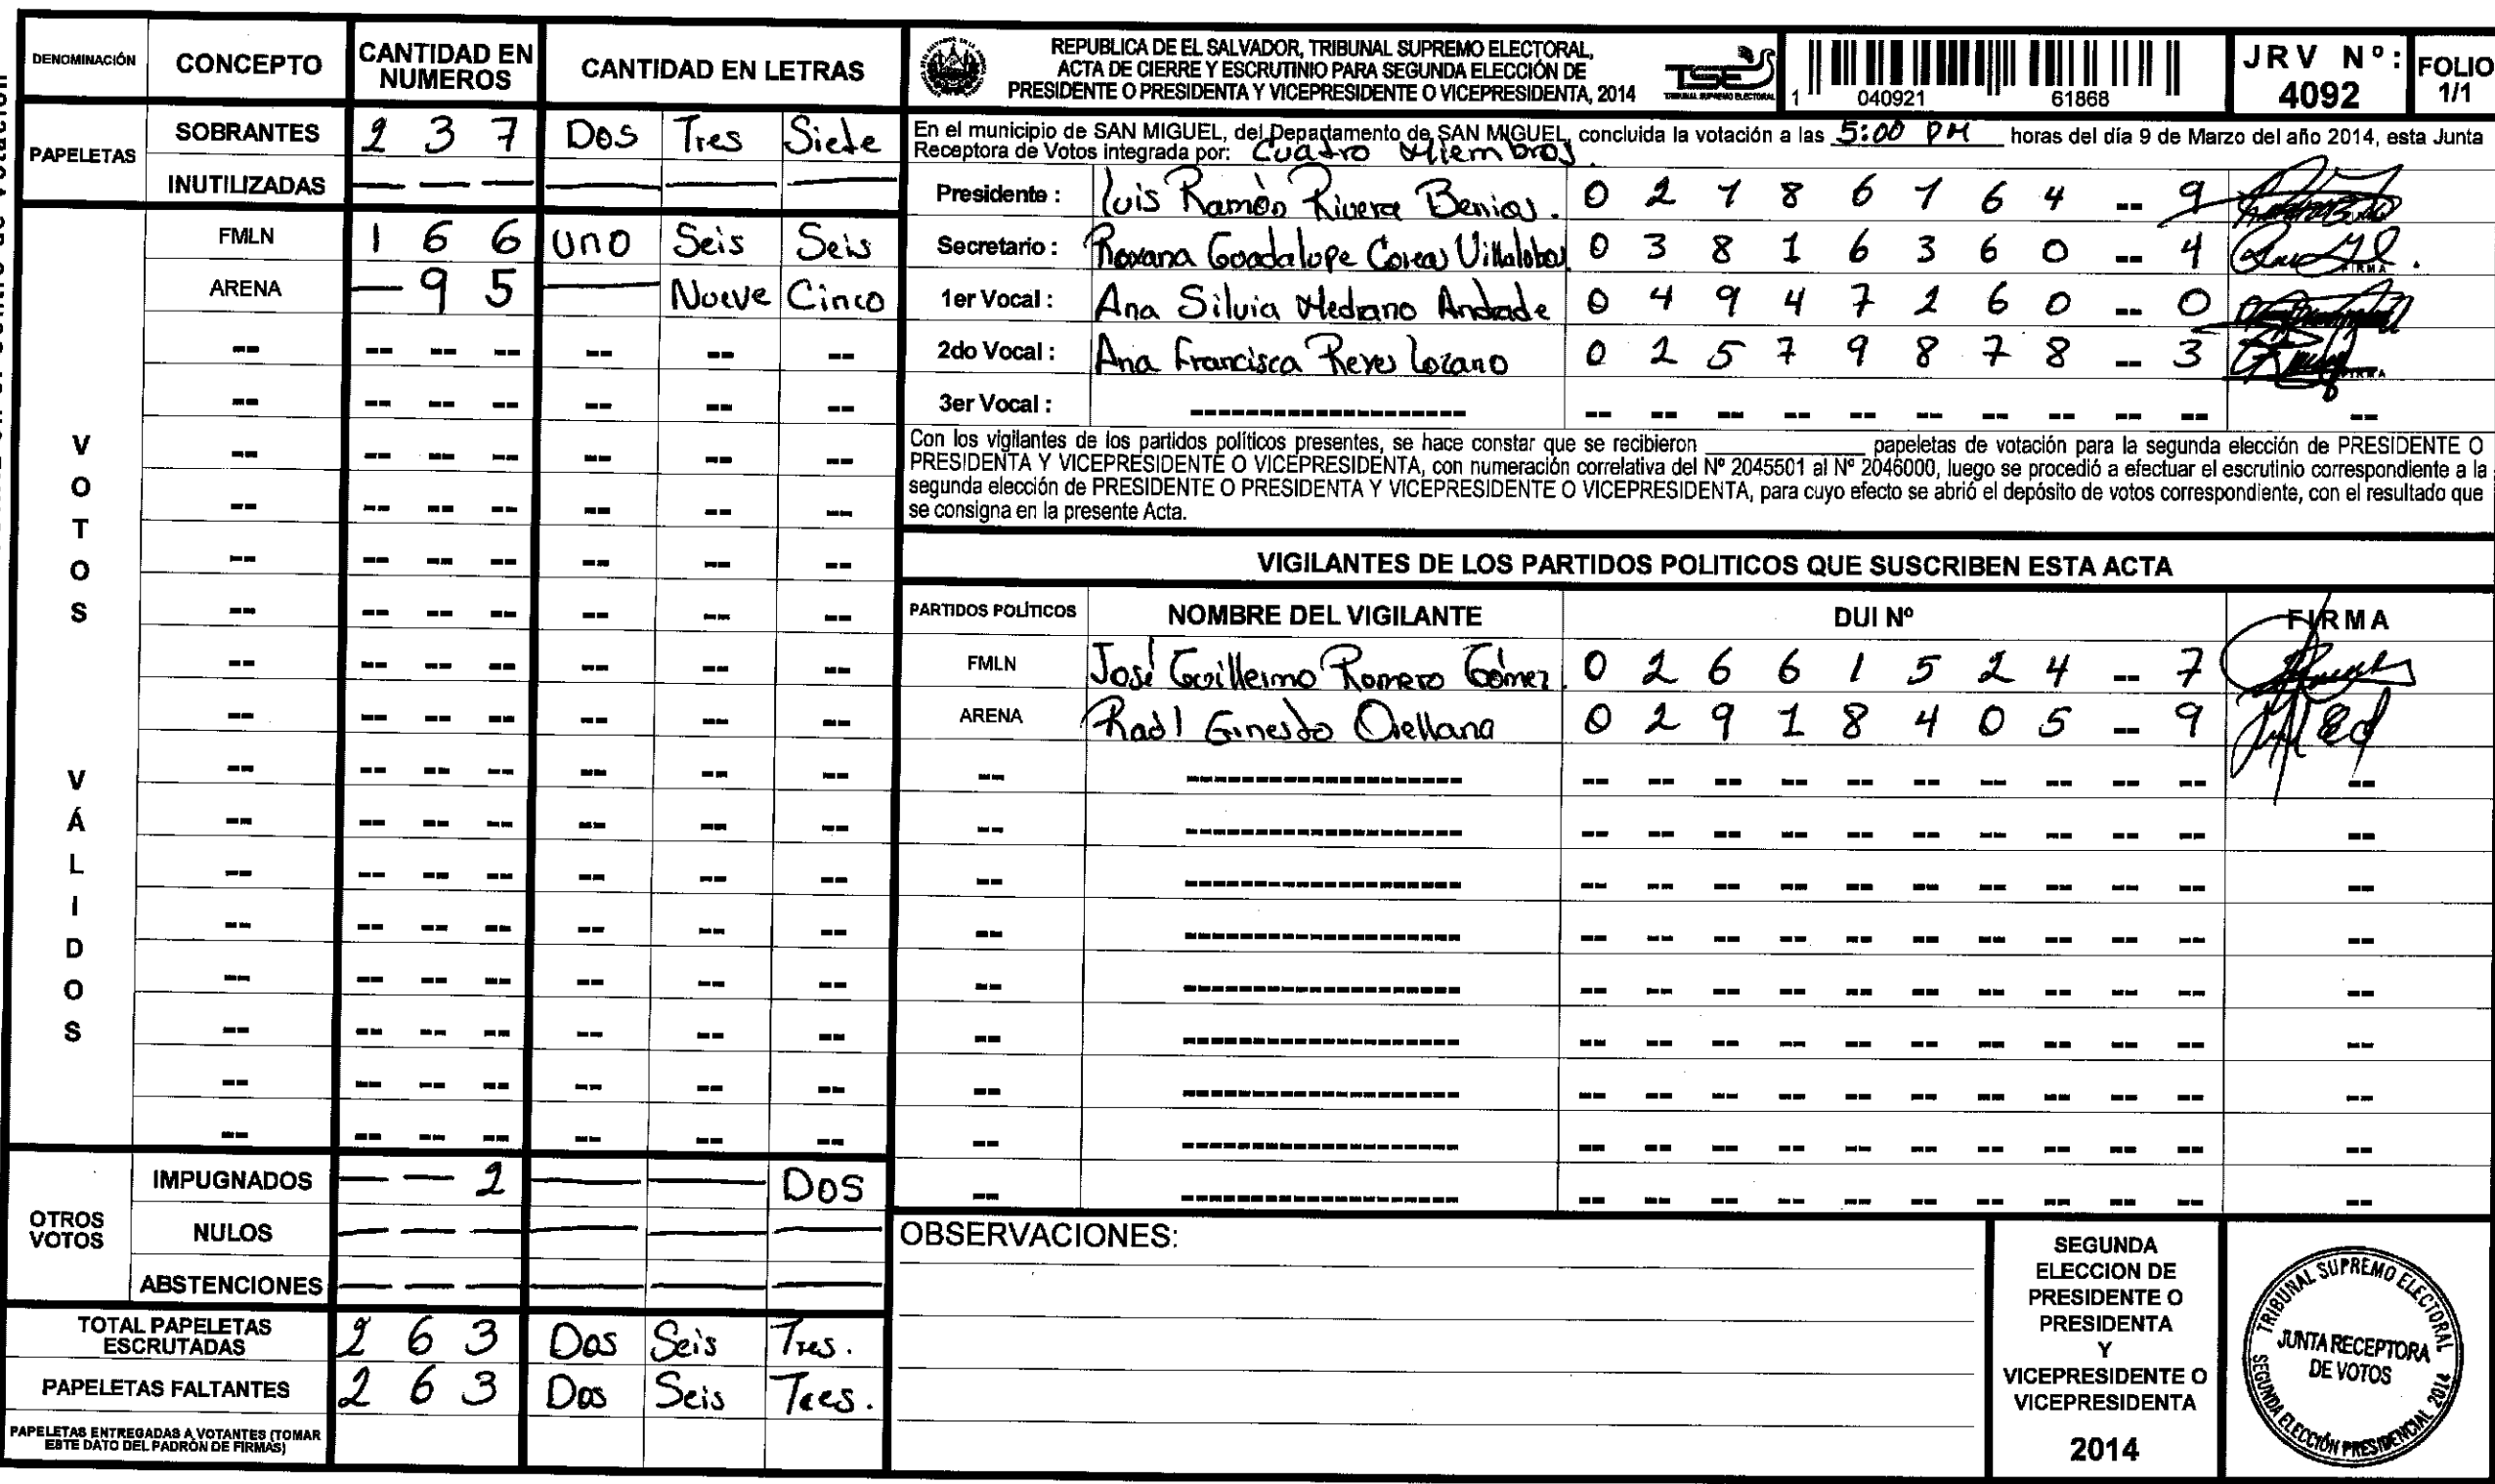 DENOMINACIÓN CONCEPTO CANTIDAD EN NUMEROS CANTIDAD EN LETRAS
PAPELETAS
SOBRANTES 2 3 7 Dos Tres Siete
INUTILIZADAS — — — — — —
VOTOS VÁLIDOS
FMLN 1 6 6 uno Seis Seis
ARENA — 9 5 — Nueve Cinco
OTROS VOTOS
IMPUGNADOS — — 2 — — Dos
NULOS — — — — — —
ABSTENCIONES — — — — — —
TOTAL PAPELETAS ESCRUTADAS 2 6 3 Dos Seis Tres.
PAPELETAS FALTANTES 2 6 3 Dos Seis Tres.
PAPELETAS ENTREGADAS A VOTANTES (TOMAR
ESTE DATO DEL PADRÓN DE FIRMAS)
REPUBLICA DE EL SALVADOR, TRIBUNAL SUPREMO ELECTORAL,
ACTA DE CIERRE Y ESCRUTINIO PARA SEGUNDA ELECCIÓN DE
PRESIDENTE O PRESIDENTA Y VICEPRESIDENTE O VICEPRESIDENTA, 2014
TSE
TRIBUNAL SUPREMO ELECTORAL
1 040921 61868
JRV Nº: 4092
FOLIO 1/1
En el municipio de SAN MIGUEL, del Departamento de SAN MIGUEL, concluida la votación a las 5:00 PM horas del día 9 de Marzo del año 2014, esta Junta
Receptora de Votos integrada por: Cuatro Miembros.
Presidente : Luis Ramón Rivera Benios. 0 2 7 8 6 7 6 4 -- 9
Secretario : Roxana Guadalupe Coreas Villalobos 0 3 8 1 6 3 6 0 -- 4 FIRMA
1er Vocal : Ana Silvia Medrano Andrade 0 4 9 4 7 2 6 0 -- 0
2do Vocal : Ana Francisca Reyes Lozano 0 2 5 7 9 8 7 8 -- 3 FIRMA
3er Vocal :
Con los vigilantes de los partidos políticos presentes, se hace constar que se recibieron ________ papeletas de votación para la segunda elección de PRESIDENTE O
PRESIDENTA Y VICEPRESIDENTE O VICEPRESIDENTA, con numeración correlativa del Nº 2045501 al Nº 2046000, luego se procedió a efectuar el escrutinio correspondiente a la
segunda elección de PRESIDENTE O PRESIDENTA Y VICEPRESIDENTE O VICEPRESIDENTA, para cuyo efecto se abrió el depósito de votos correspondiente, con el resultado que
se consigna en la presente Acta.
VIGILANTES DE LOS PARTIDOS POLITICOS QUE SUSCRIBEN ESTA ACTA
PARTIDOS POLÍTICOS NOMBRE DEL VIGILANTE DUI Nº FIRMA
FMLN José Guillermo Romero Gómez. 0 2 6 6 1 5 2 4 -- 7
ARENA Raúl Ernesto Orellana 0 2 9 1 8 4 0 5 -- 9
OBSERVACIONES:
SEGUNDA
ELECCION DE
PRESIDENTE O
PRESIDENTA
Y
VICEPRESIDENTE O
VICEPRESIDENTA
2014
TRIBUNAL SUPREMO ELECTORAL
JUNTA RECEPTORA
DE VOTOS
SEGUNDA ELECCIÓN PRESIDENCIAL 2014